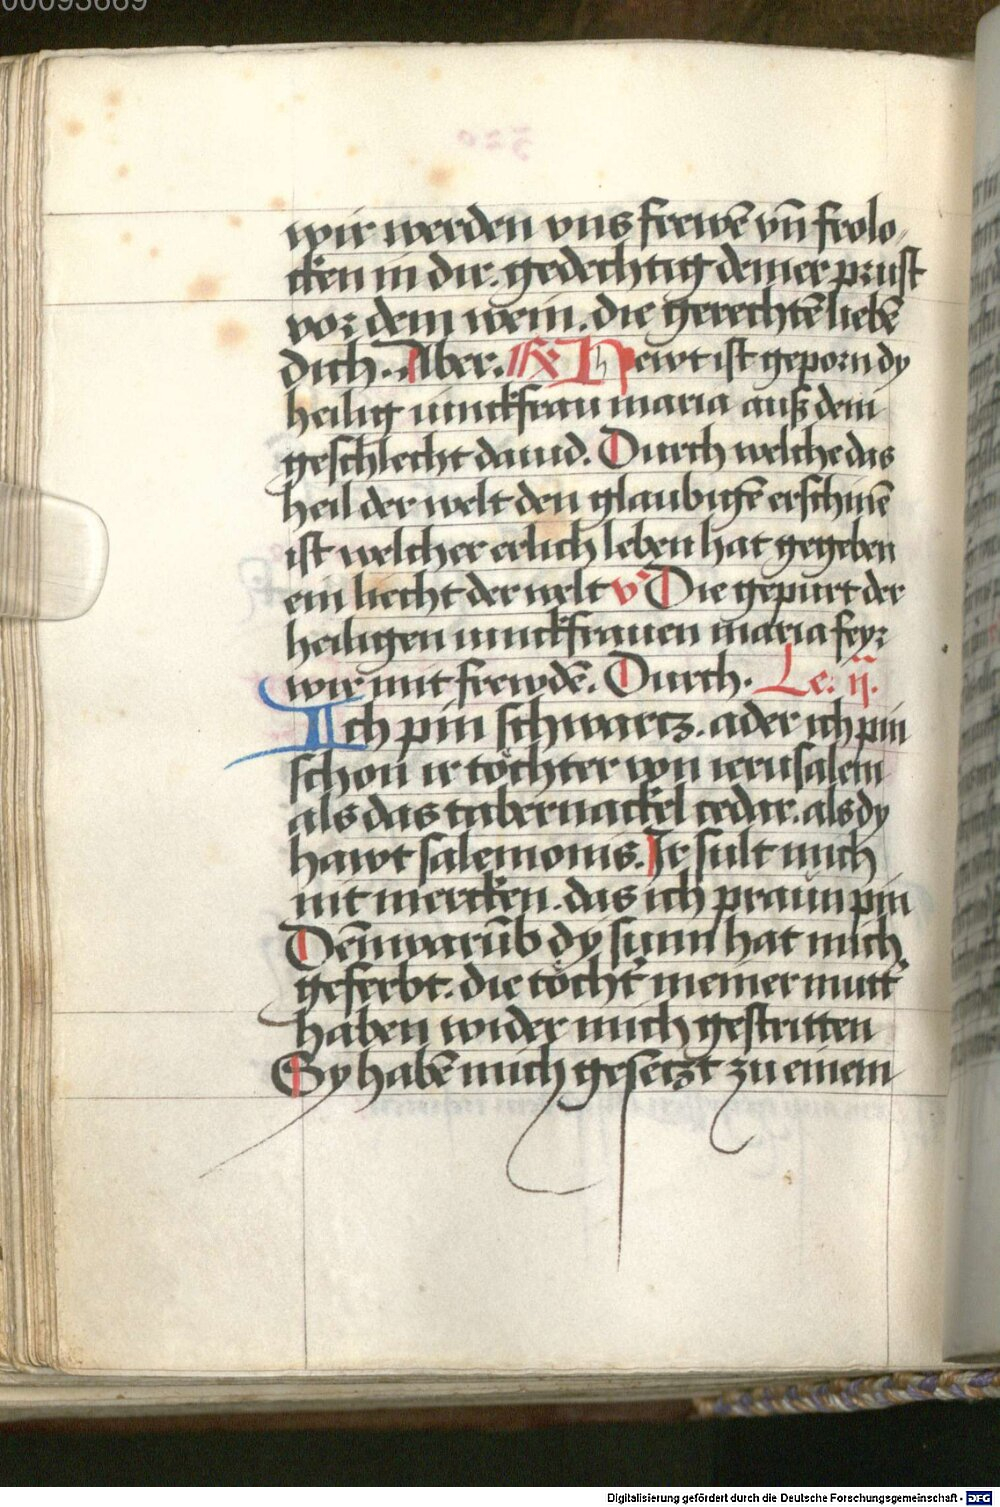 00093669
wir werden vns frewē vn̄ frolo
cken in dir. gedechtig deiner prust
vor dem wein. die gerechtē liebē
dich. Aber. R͞ Hewt ist geporn dy
heilig iunckfrau maria auß dem
geschlecht dauid. Durch welche das
heil der welt den glaubigē erschinē
ist welcher erlich leben hat gegeben
ein liecht der welt v° Die gepurt der
heiligen iunckfrauen maria feyr
wir mit frewdē. Durch. Le. ij.
Ich pin schwartz. ader ich pin
schon ir töchter von ierusalem
als das tabernackel cedar. als dy
hawt salemonis. Ir sult mich
nit mercken. das ich praun pin
Dēn warūb dy sunn hat mich
geferbt. die töcht̄ meiner mutt̄
haben wider mich gestritten
Sy habē mich gesetzt zu einem
Digitalisierung gefördert durch die Deutsche Forschungsgemeinschaft - DFG